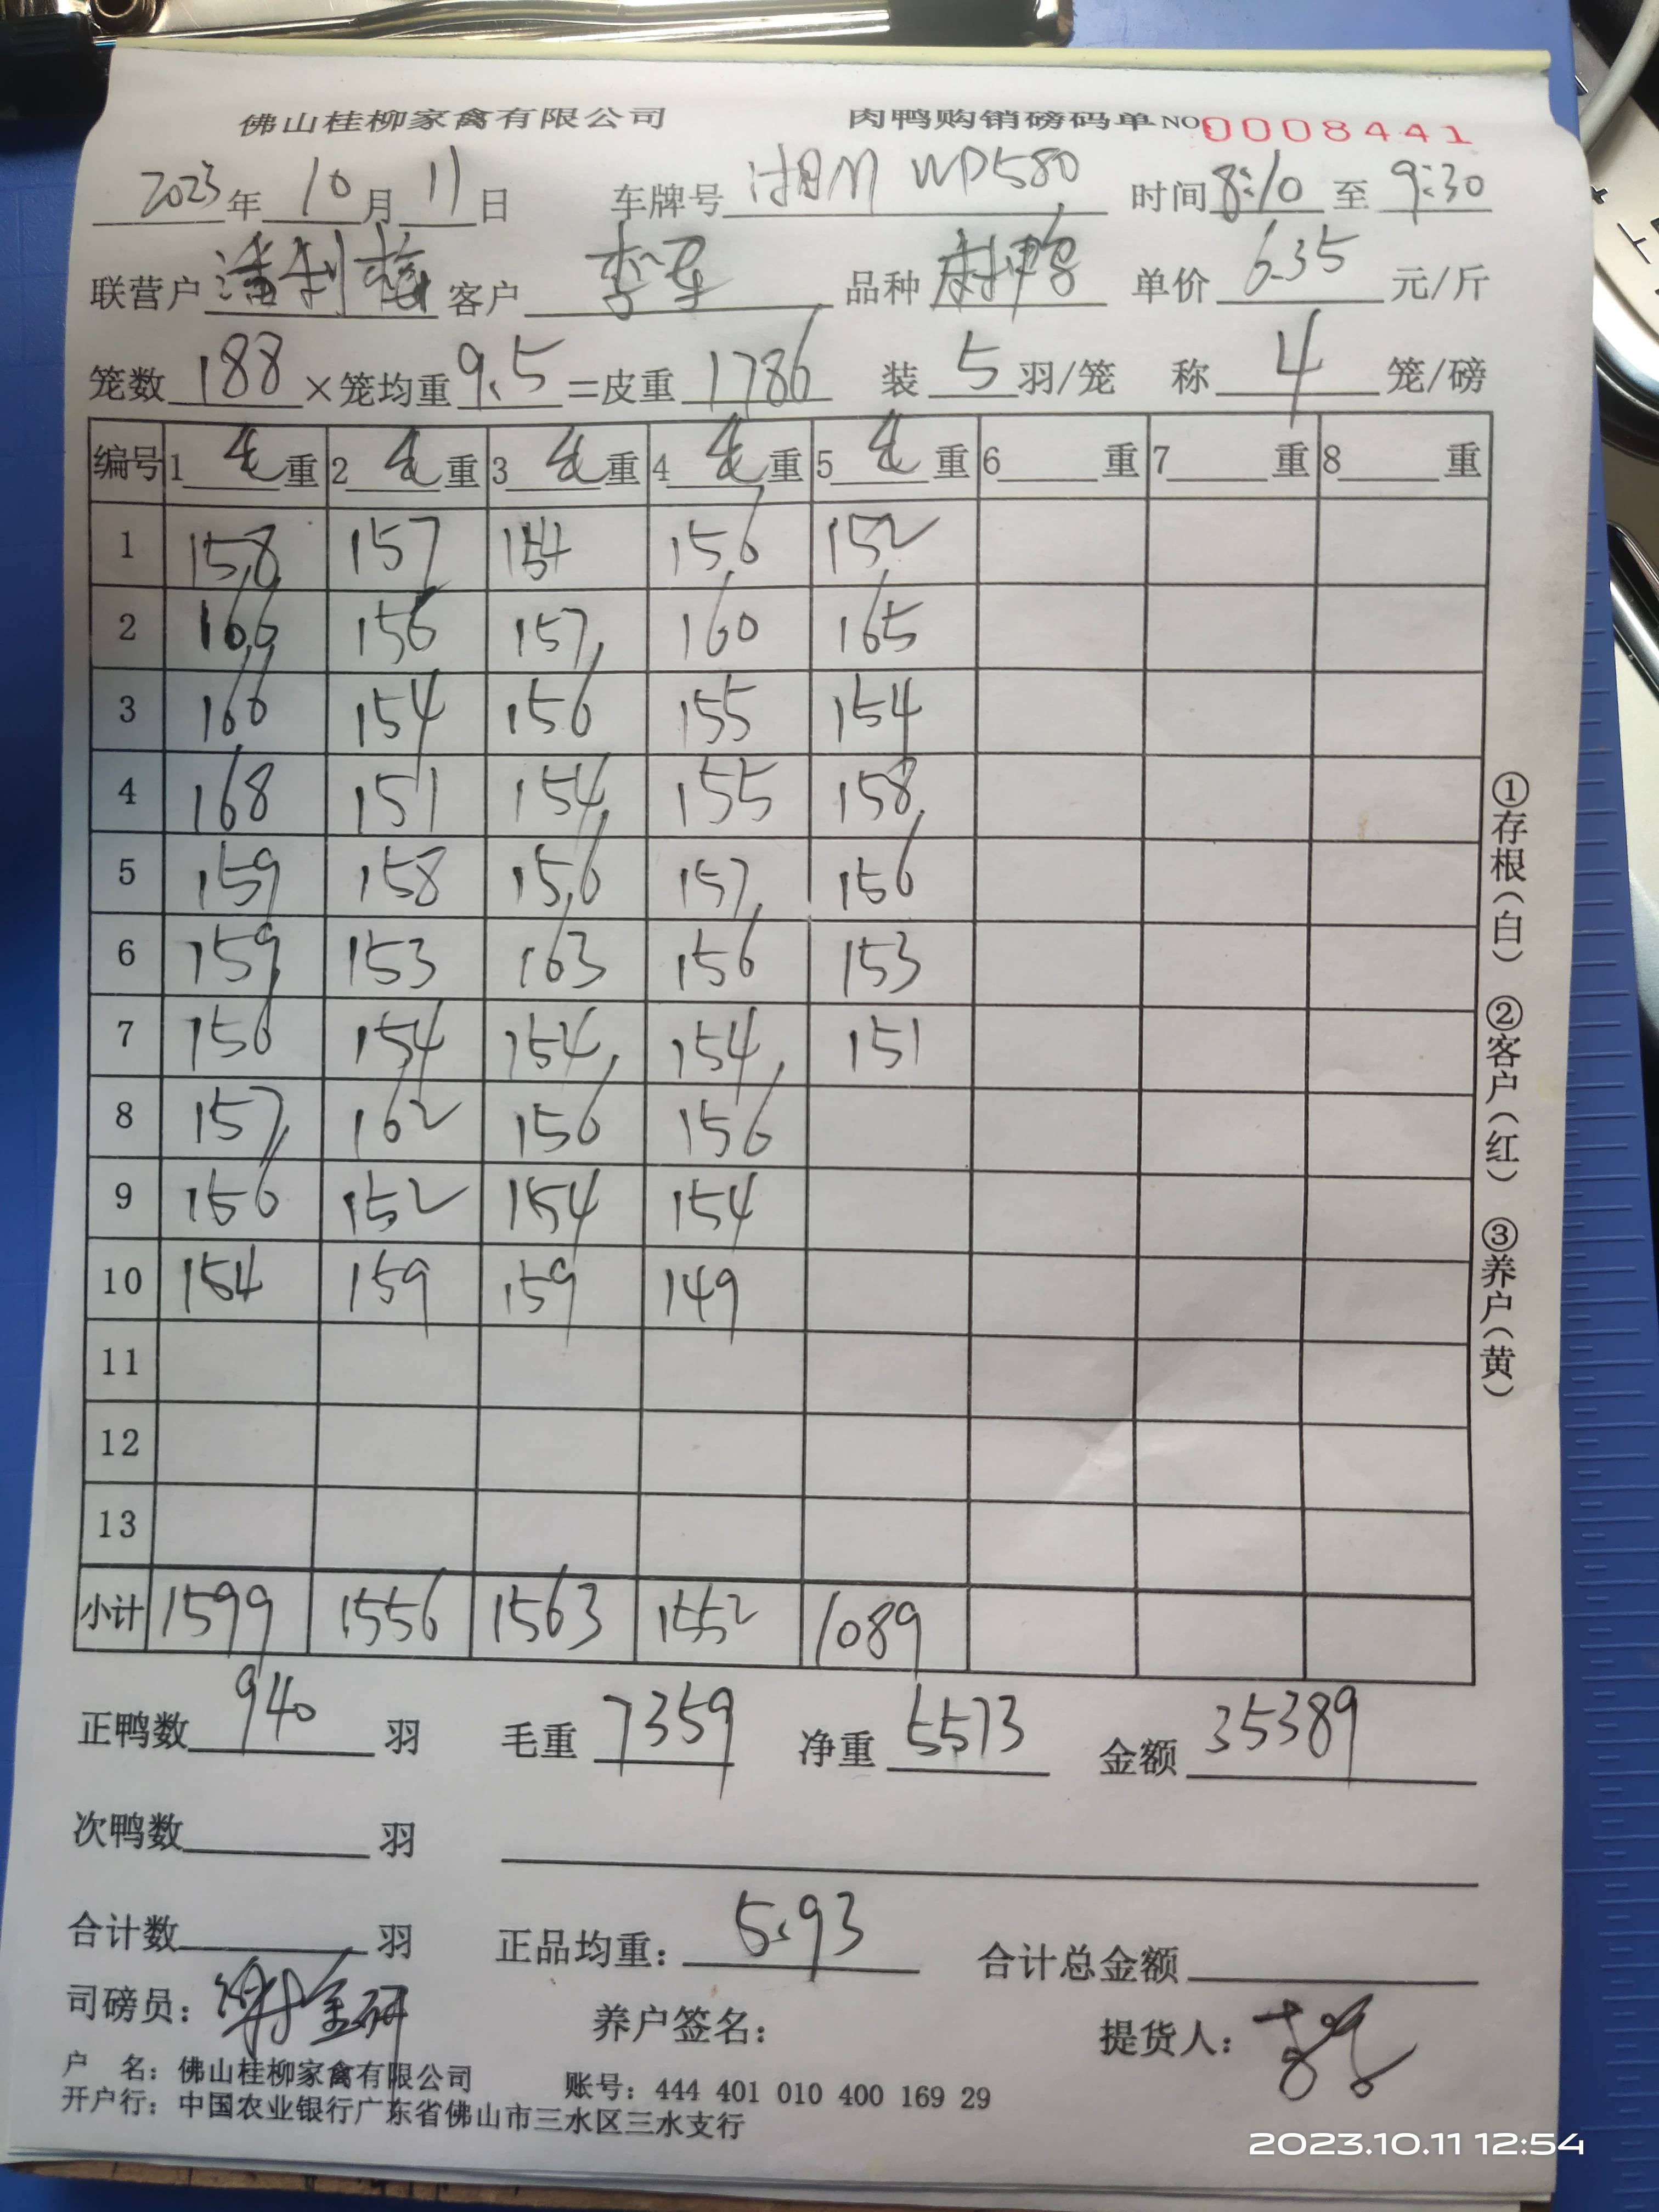 佛山桂柳家禽有限公司 肉鸭购销磅码单 NO 0008441
2023年10月11日 车牌号 湘M WP580 时间 8:10 至 9:30
联营户 潘利梅 客户 李军 品种 麻鸭 单价 6.35 元/斤
笼数 188 ×笼均重 9.5 =皮重 1786 装 5 羽/笼 称 4 笼/磅
编号 1 毛 重 2 毛 重 3 毛 重 4 毛 重 5 毛 重 6 重 7 重 8 重
1 158 157 154 156 152
2 166 156 157 160 165
3 166 154 156 155 154
4 168 151 154 155 158
5 159 158 156 157 156
6 159 153 163 156 153
7 156 154 154 154 151
8 157 162 156 156
9 156 152 154 154
10 154 159 159 149
11
12
13
小计 1599 1556 1563 1552 1089
正鸭数 940 羽 毛重 7359 净重 5573 金额 35389
次鸭数 羽
合计数 羽 正品均重: 5.93 合计总金额
司磅员: 养户签名: 提货人:
户 名: 佛山桂柳家禽有限公司 账号: 444 401 010 400 169 29
开户行: 中国农业银行广东省佛山市三水区三水支行
①存根(白) ②客户(红) ③养户(黄)
2023.10.11 12:54